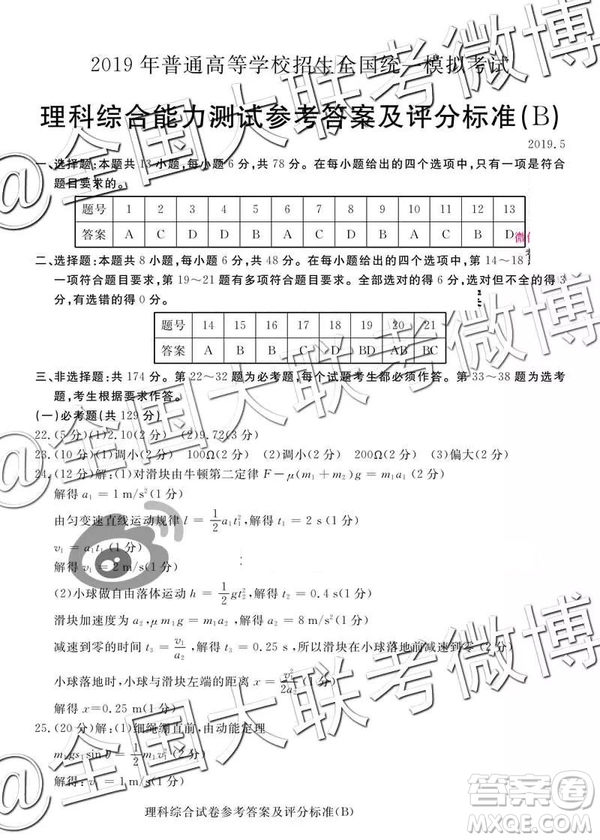 2019年普通高等学校招生全国统一模拟考试
理科综合能力测试参考答案及评分标准(B)
2019.5
一、选择题:本题共13小题,每小题6分,共78分。在每小题给出的四个选项中,只有一项是符合
题目要求的。
题号 1 2 3 4 5 6 7 8 9 10 11 12 13
答案 A C D D B A C D A C D B D
二、选择题:本题共8小题,每小题6分,共48分。在每小题给出的四个选项中,第14~18
一项符合题目要求,第19~21题有多项符合题目要求。全部选对的得6分,选对但不全的得3
分,有选错的得0分。
题号 14 15 16 17 18 19 20 21
答案 A B B C D BD ABD AC
三、非选择题:共174分。第22~32题为必考题,每个试题考生都必须作答。第33~38题为选考
题,考生根据要求作答。
(一)必考题(共129分)
22.(5分)(1)2.10(2分) (2)9.72(3分)
23.(10分)(1)调小(2分) 100Ω(2分) (2)调小(2分) 200Ω(2分) (3)偏大(2分)
24.(12分)解:(1)对滑块由牛顿第二定律 F-μ(m₁+m₂)g=m₁a₁(2分)
解得a₁=1 m/s²(1分)
由匀变速直线运动规律 l=1/2a₁t₁², 解得 t₁=2 s(1分)
v₁=a₁t₁(1分)
解得v₁=2 m/s(1分)
(2)小球做自由落体运动 h=1/2gt₂², 解得 t₂=0.4 s(1分)
滑块加速度为a₂, μm₁g=m₁a₂, 解得a₂=8 m/s²(1分)
减速到零的时间 t₃=v₁/a₂, 解得 t₃=0.25 s, 所以滑块在小球落地前减速到零(2分)
小球落地时,小球与滑块左端的距离 x=v₁²/2a₂(1分)
解得 x=0.25 m(1分)
25.(20分)解:(1)细绳绷直前,由动能定理
理科综合试卷参考答案及评分标准(B)
@全国大联考微博
@全国大联考微博
@全国大联考微博
答案圈
MXQE.COM